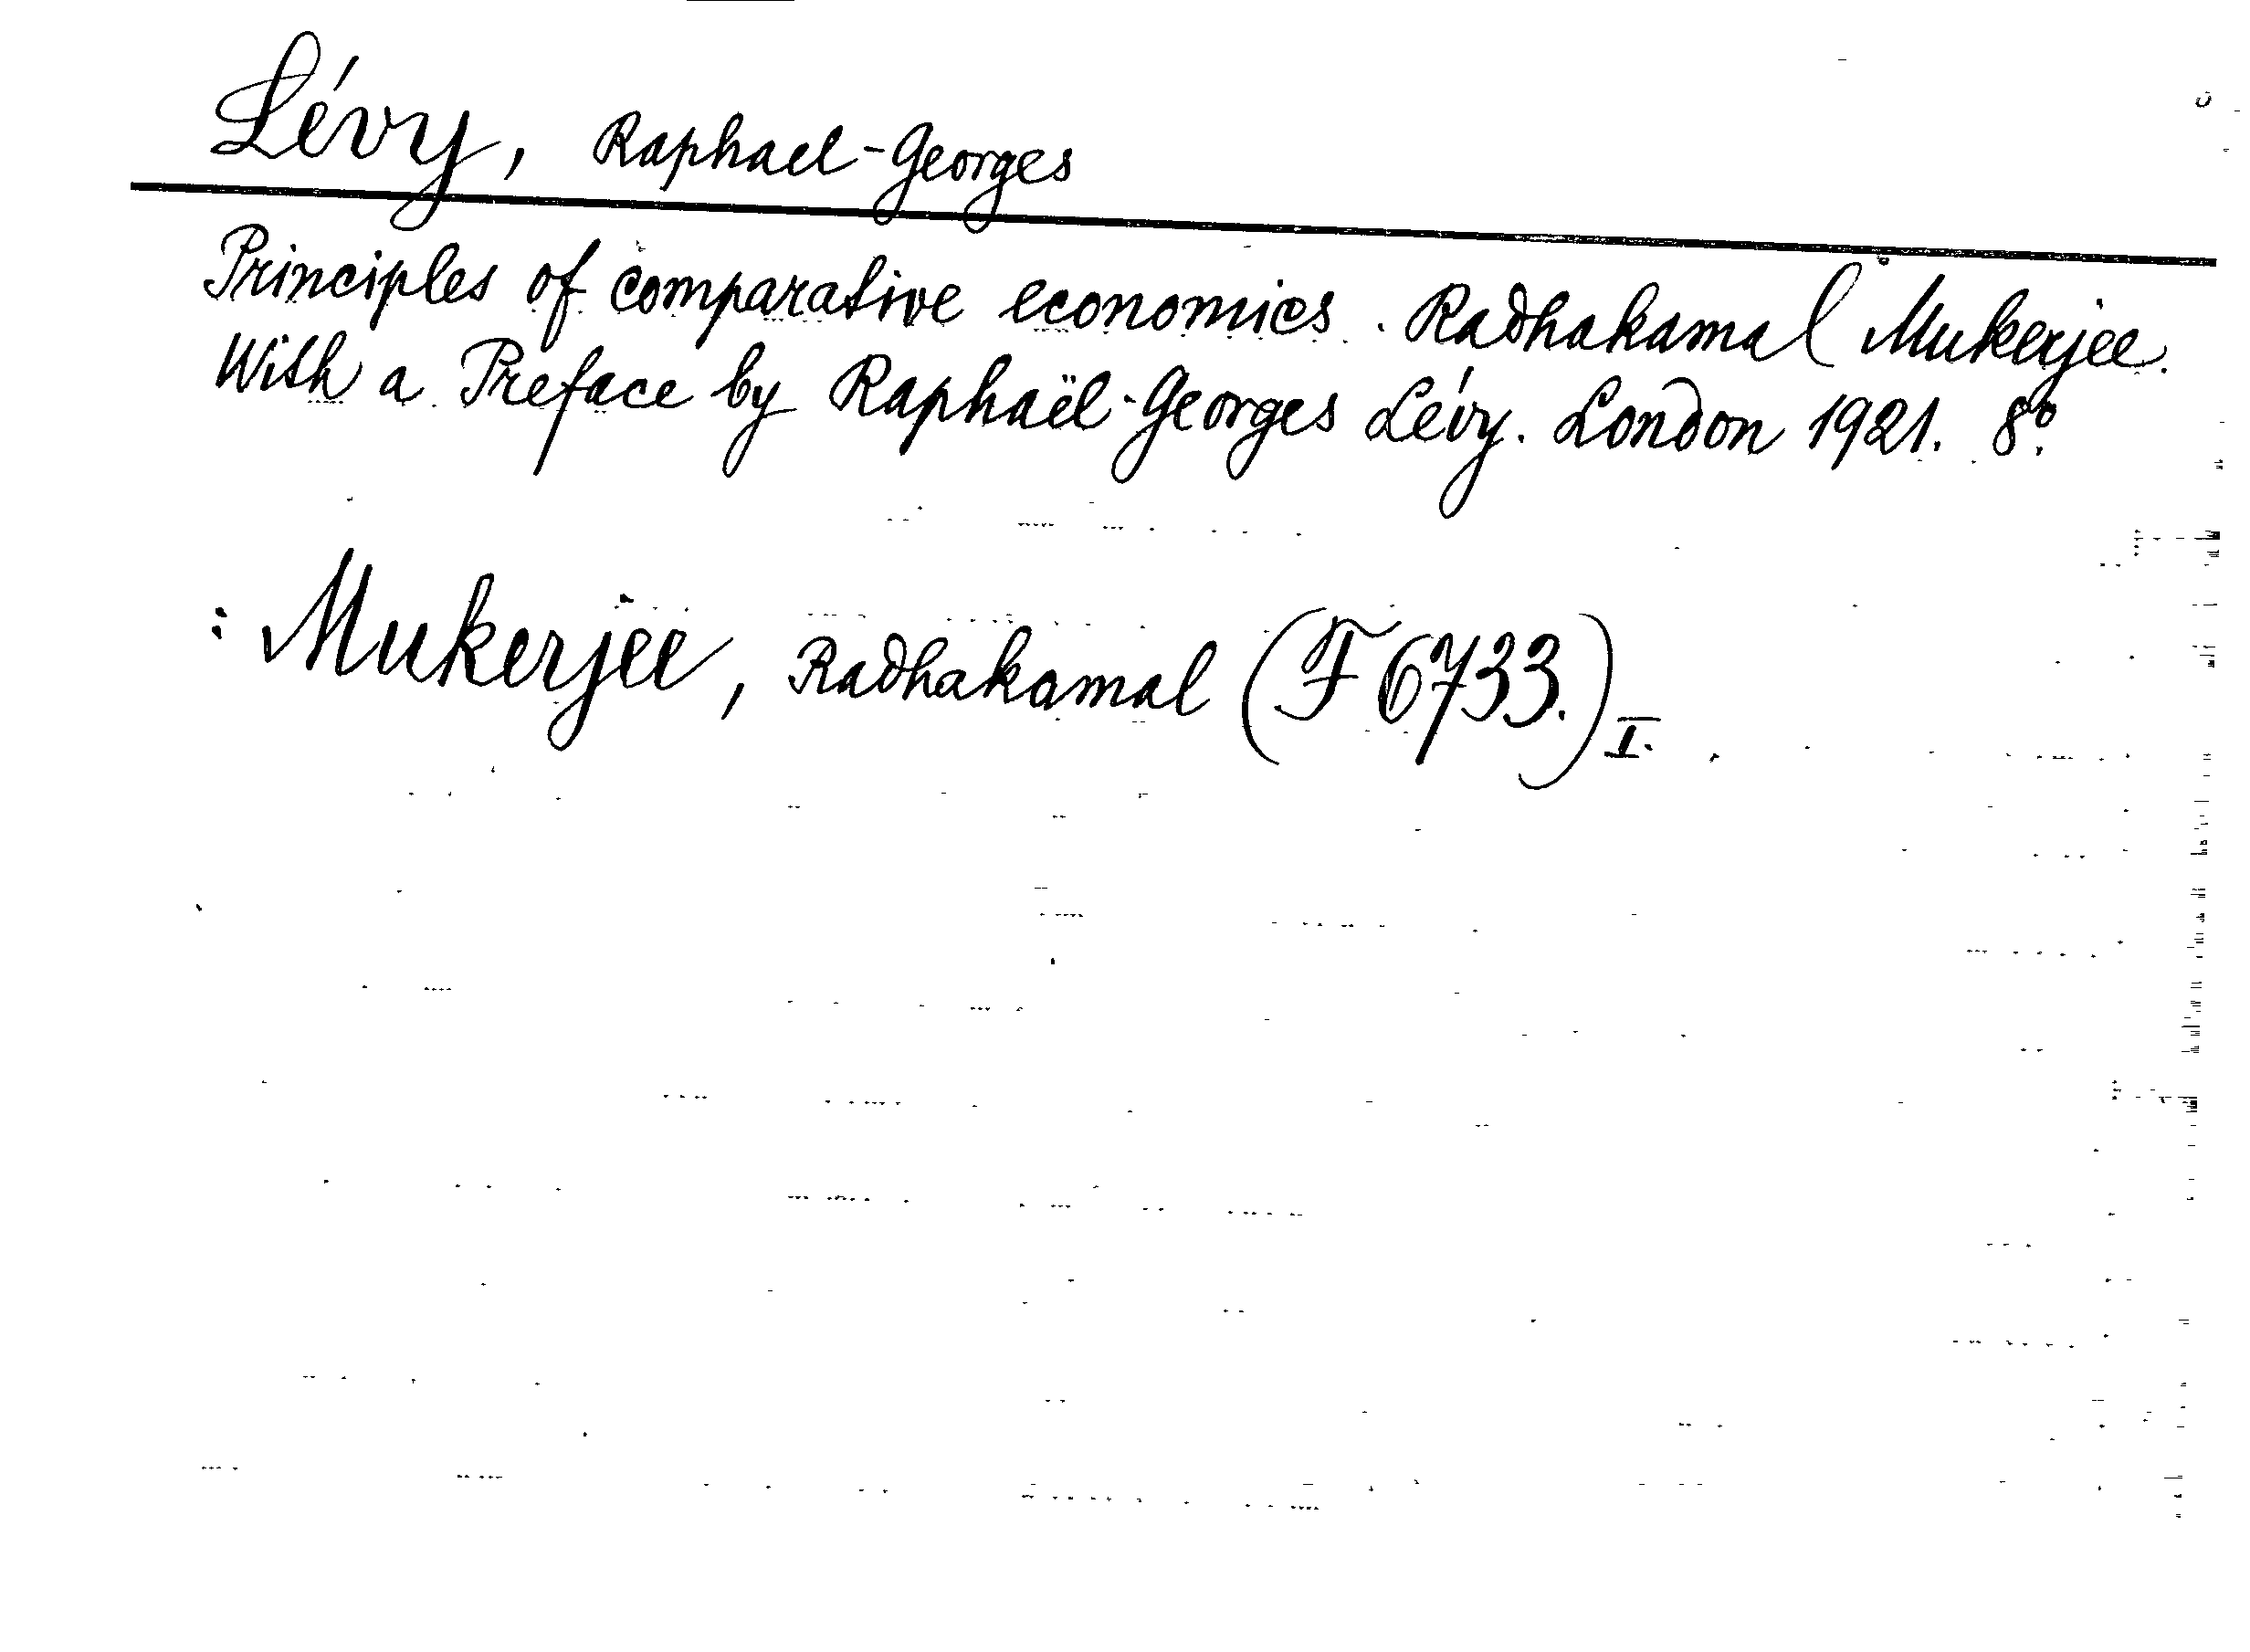 Lévy, Raphael-Georges
Principles of comparative economics. Radhakamal Mukerjee.
With a Preface by Raphaël-Georges Lévy. London 1921. 8º.
: Mukerjee, Radhakamal (F 6733.) I.